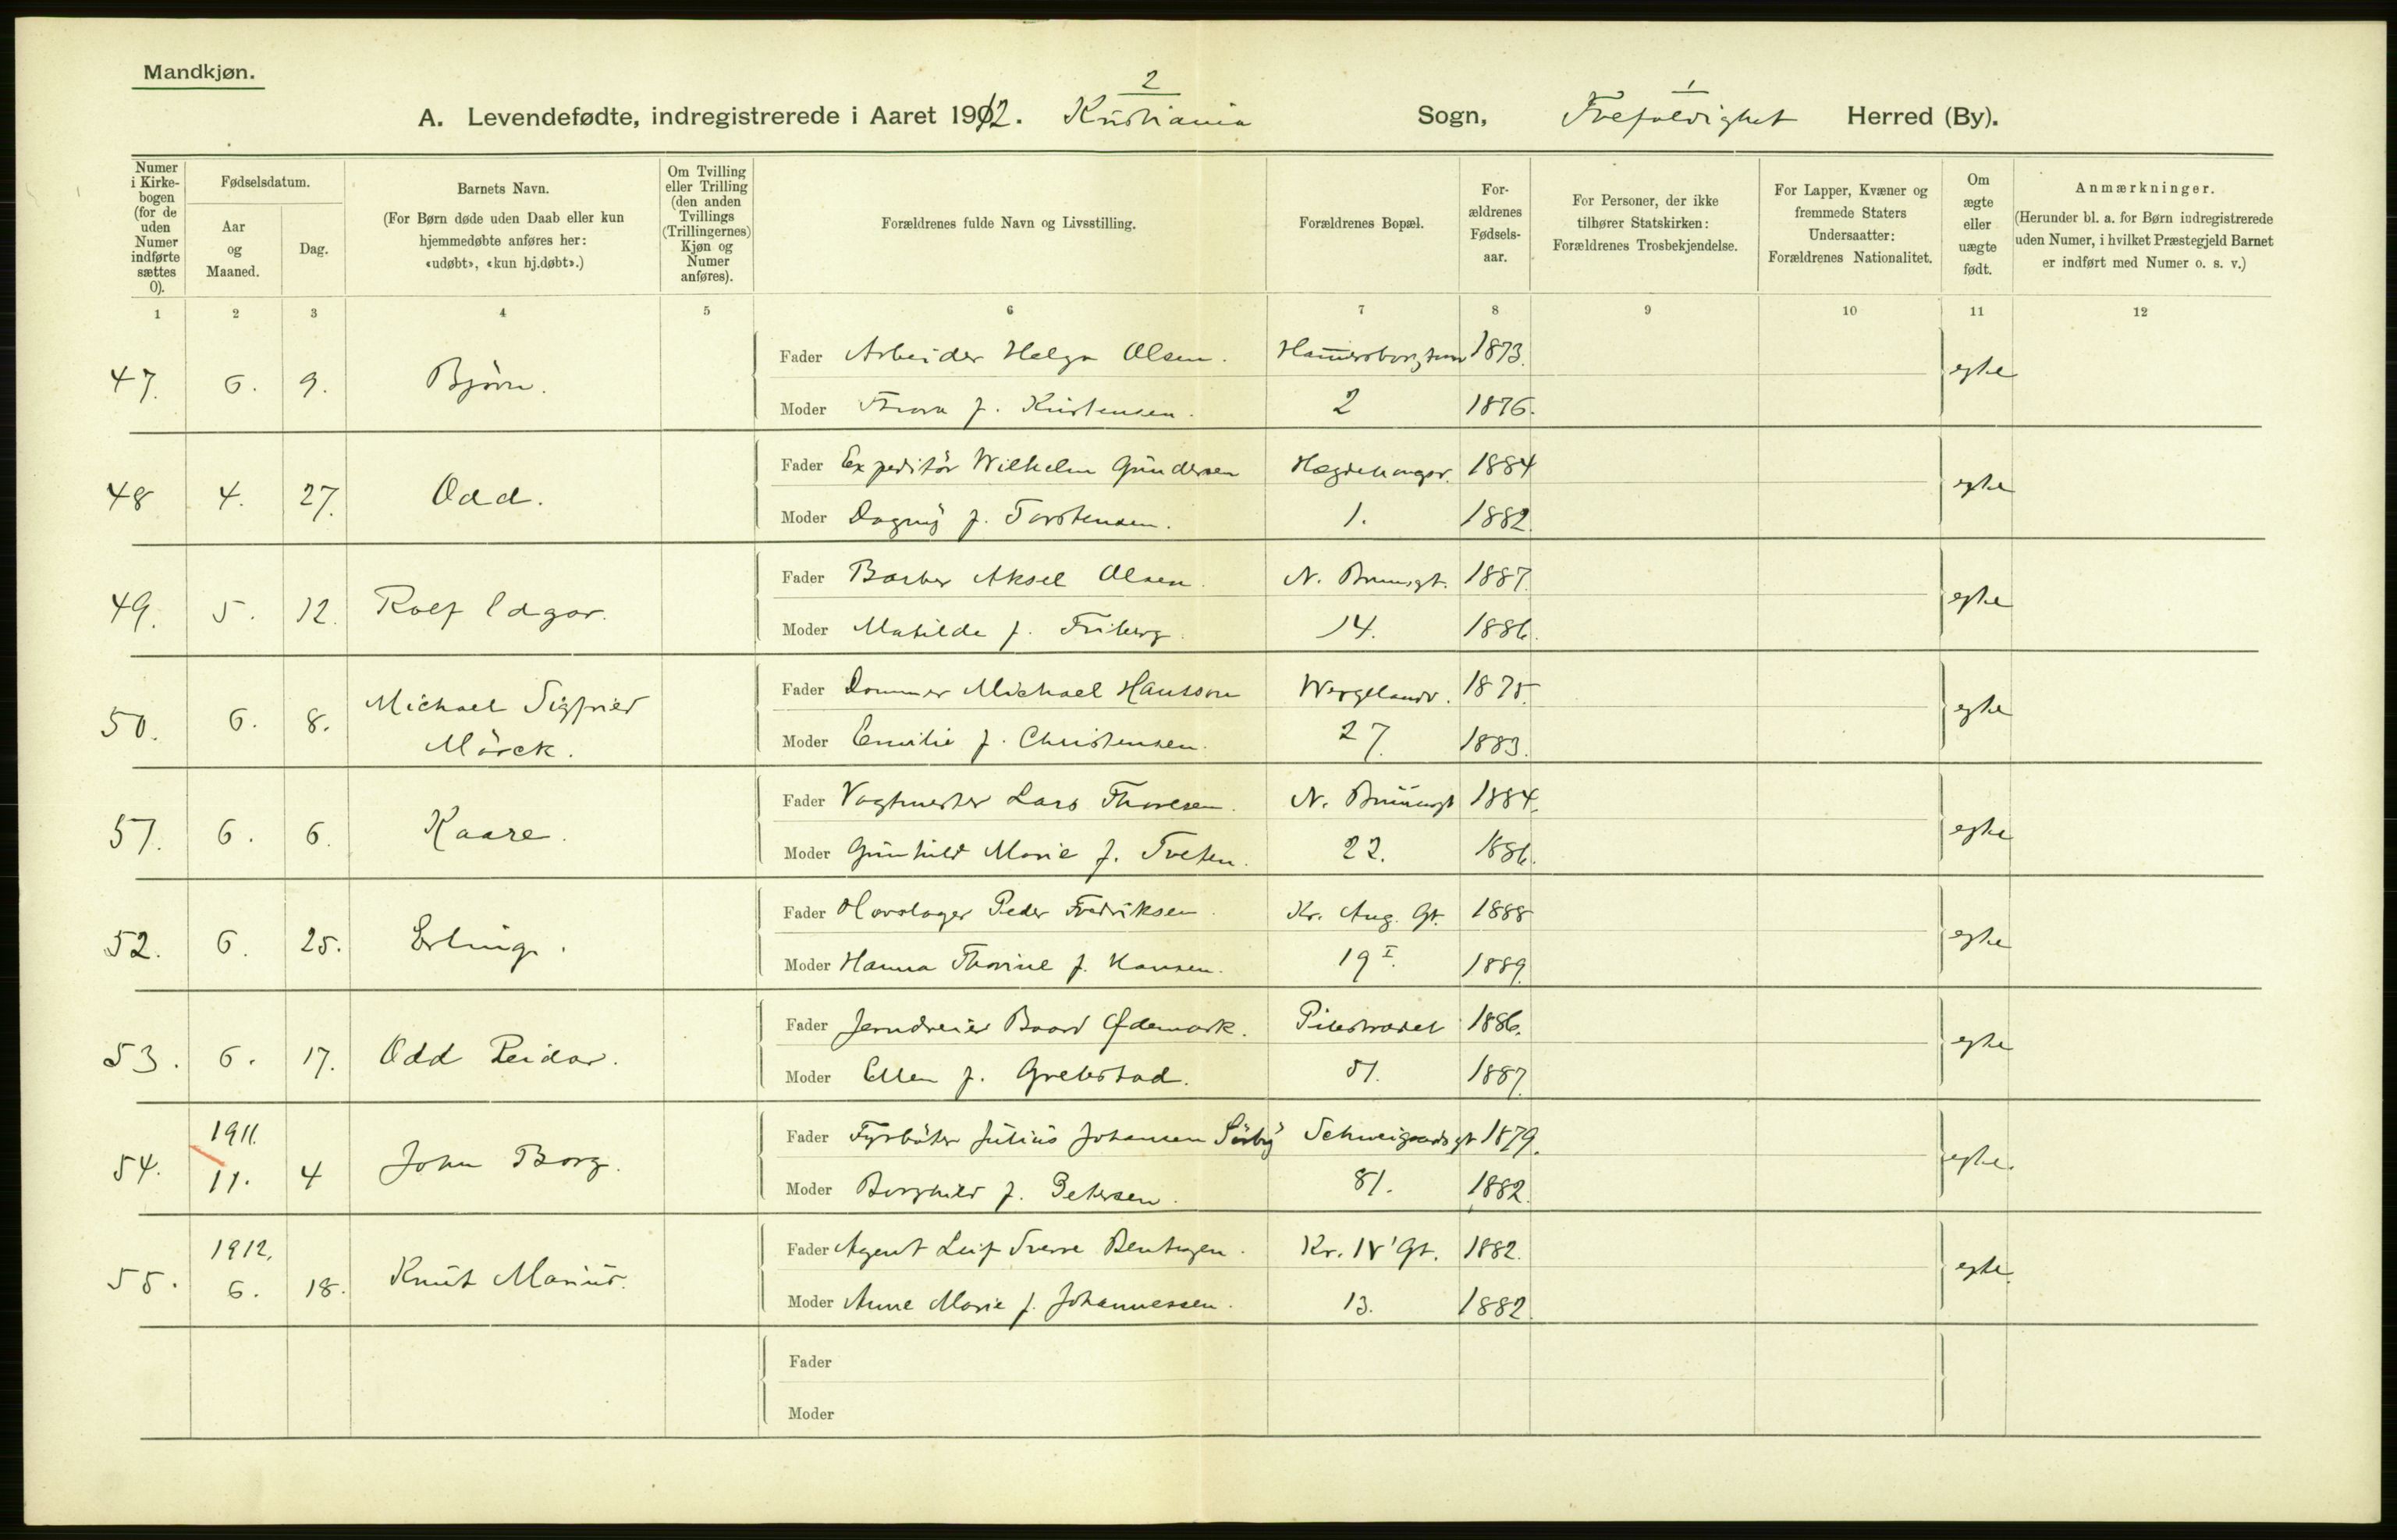 Mandkjøn.
2
1
A. Levendefødte, indregistrerede i Aaret 1912. Kristiania Sogn, Trefoldighet Herred (By).
Numer i Kirkebogen (for de uden Numer indførte sættes 0).
Fødselsdatum.
Aar og Maaned.
Dag.
Barnets Navn.
(For Børn døde uden Daab eller kun hjemmedøbte anføres her: «udøbt», «kun hj.døbt».)
Om Tvilling eller Trilling (den anden Tvillings (Trillingernes) Kjøn og Numer anføres).
Forældrenes fulde Navn og Livsstilling.
Forældrenes Bopæl.
Forældrenes Fødselsaar.
For Personer, der ikke tilhører Statskirken: Forældrenes Trosbekjendelse.
For Lapper, Kvæner og fremmede Staters Undersaatter: Forældrenes Nationalitet.
Om ægte eller uægte født.
Anmærkninger.
(Herunder bl. a. for Børn indregistrerede uden Numer, i hvilket Præstegjeld Barnet er indført med Numer o. s. v.)
1 2 3 4 5 6 7 8 9 10 11 12
47. 6. 9. Björn. Fader Arbeider Helge Olsen. 1873. egte
Moder Thora f. Kristensen. 2 1876.
48 4. 27. Odd. Fader Expeditör Wilhelm Gundersen Hægdehaugsv. 1884 egte
Moder Dagny f. Torstensen. 1. 1882.
49. 5. 12. Rolf Edgar. Fader Barber Aksel Olsen. N. Brunsgt. 1887. egte
Moder Matilde f. Friberg. 14. 1886.
50. 6. 8. Michael Sigfried Mörck. Fader Dommer Michael Hansson Wergelandsv. 1875. egte
Moder Emilie f. Christensen. 27. 1883.
51. 6. 6. Kaare. Fader Vagtmester Lars Thoresen. N. Brunsgt 1884. egte
Moder Gunhild Marie f. Tveten. 22. 1886.
52. 6. 25. Erling. Fader Hovslager Peder Fredriksen. Kr. Aug. Gt. 1888 egte
Moder Hanna Thorine f. Hansen. 19 I. 1889.
53. 6. 17. Odd Reidar. Fader Jerndreier Baard Ødemark. Pilestrædet 1886. egte
Moder Ellen f. Grebstad. 51. 1887.
54. 1911. 11. 4 John Borg. Fader Fyrböter Julius Johansen Sörby Schweigaardsgt 1879. egte.
Moder Borghild f. Petersen. 81. 1882.
55. 1912. 6. 18. Knut Marius. Fader Agent Leif Sverre Bentzen. Kr. IV' Gt. 1882. egte.
Moder Anne Marie f. Johannessen. 13. 1882.
Fader
Moder